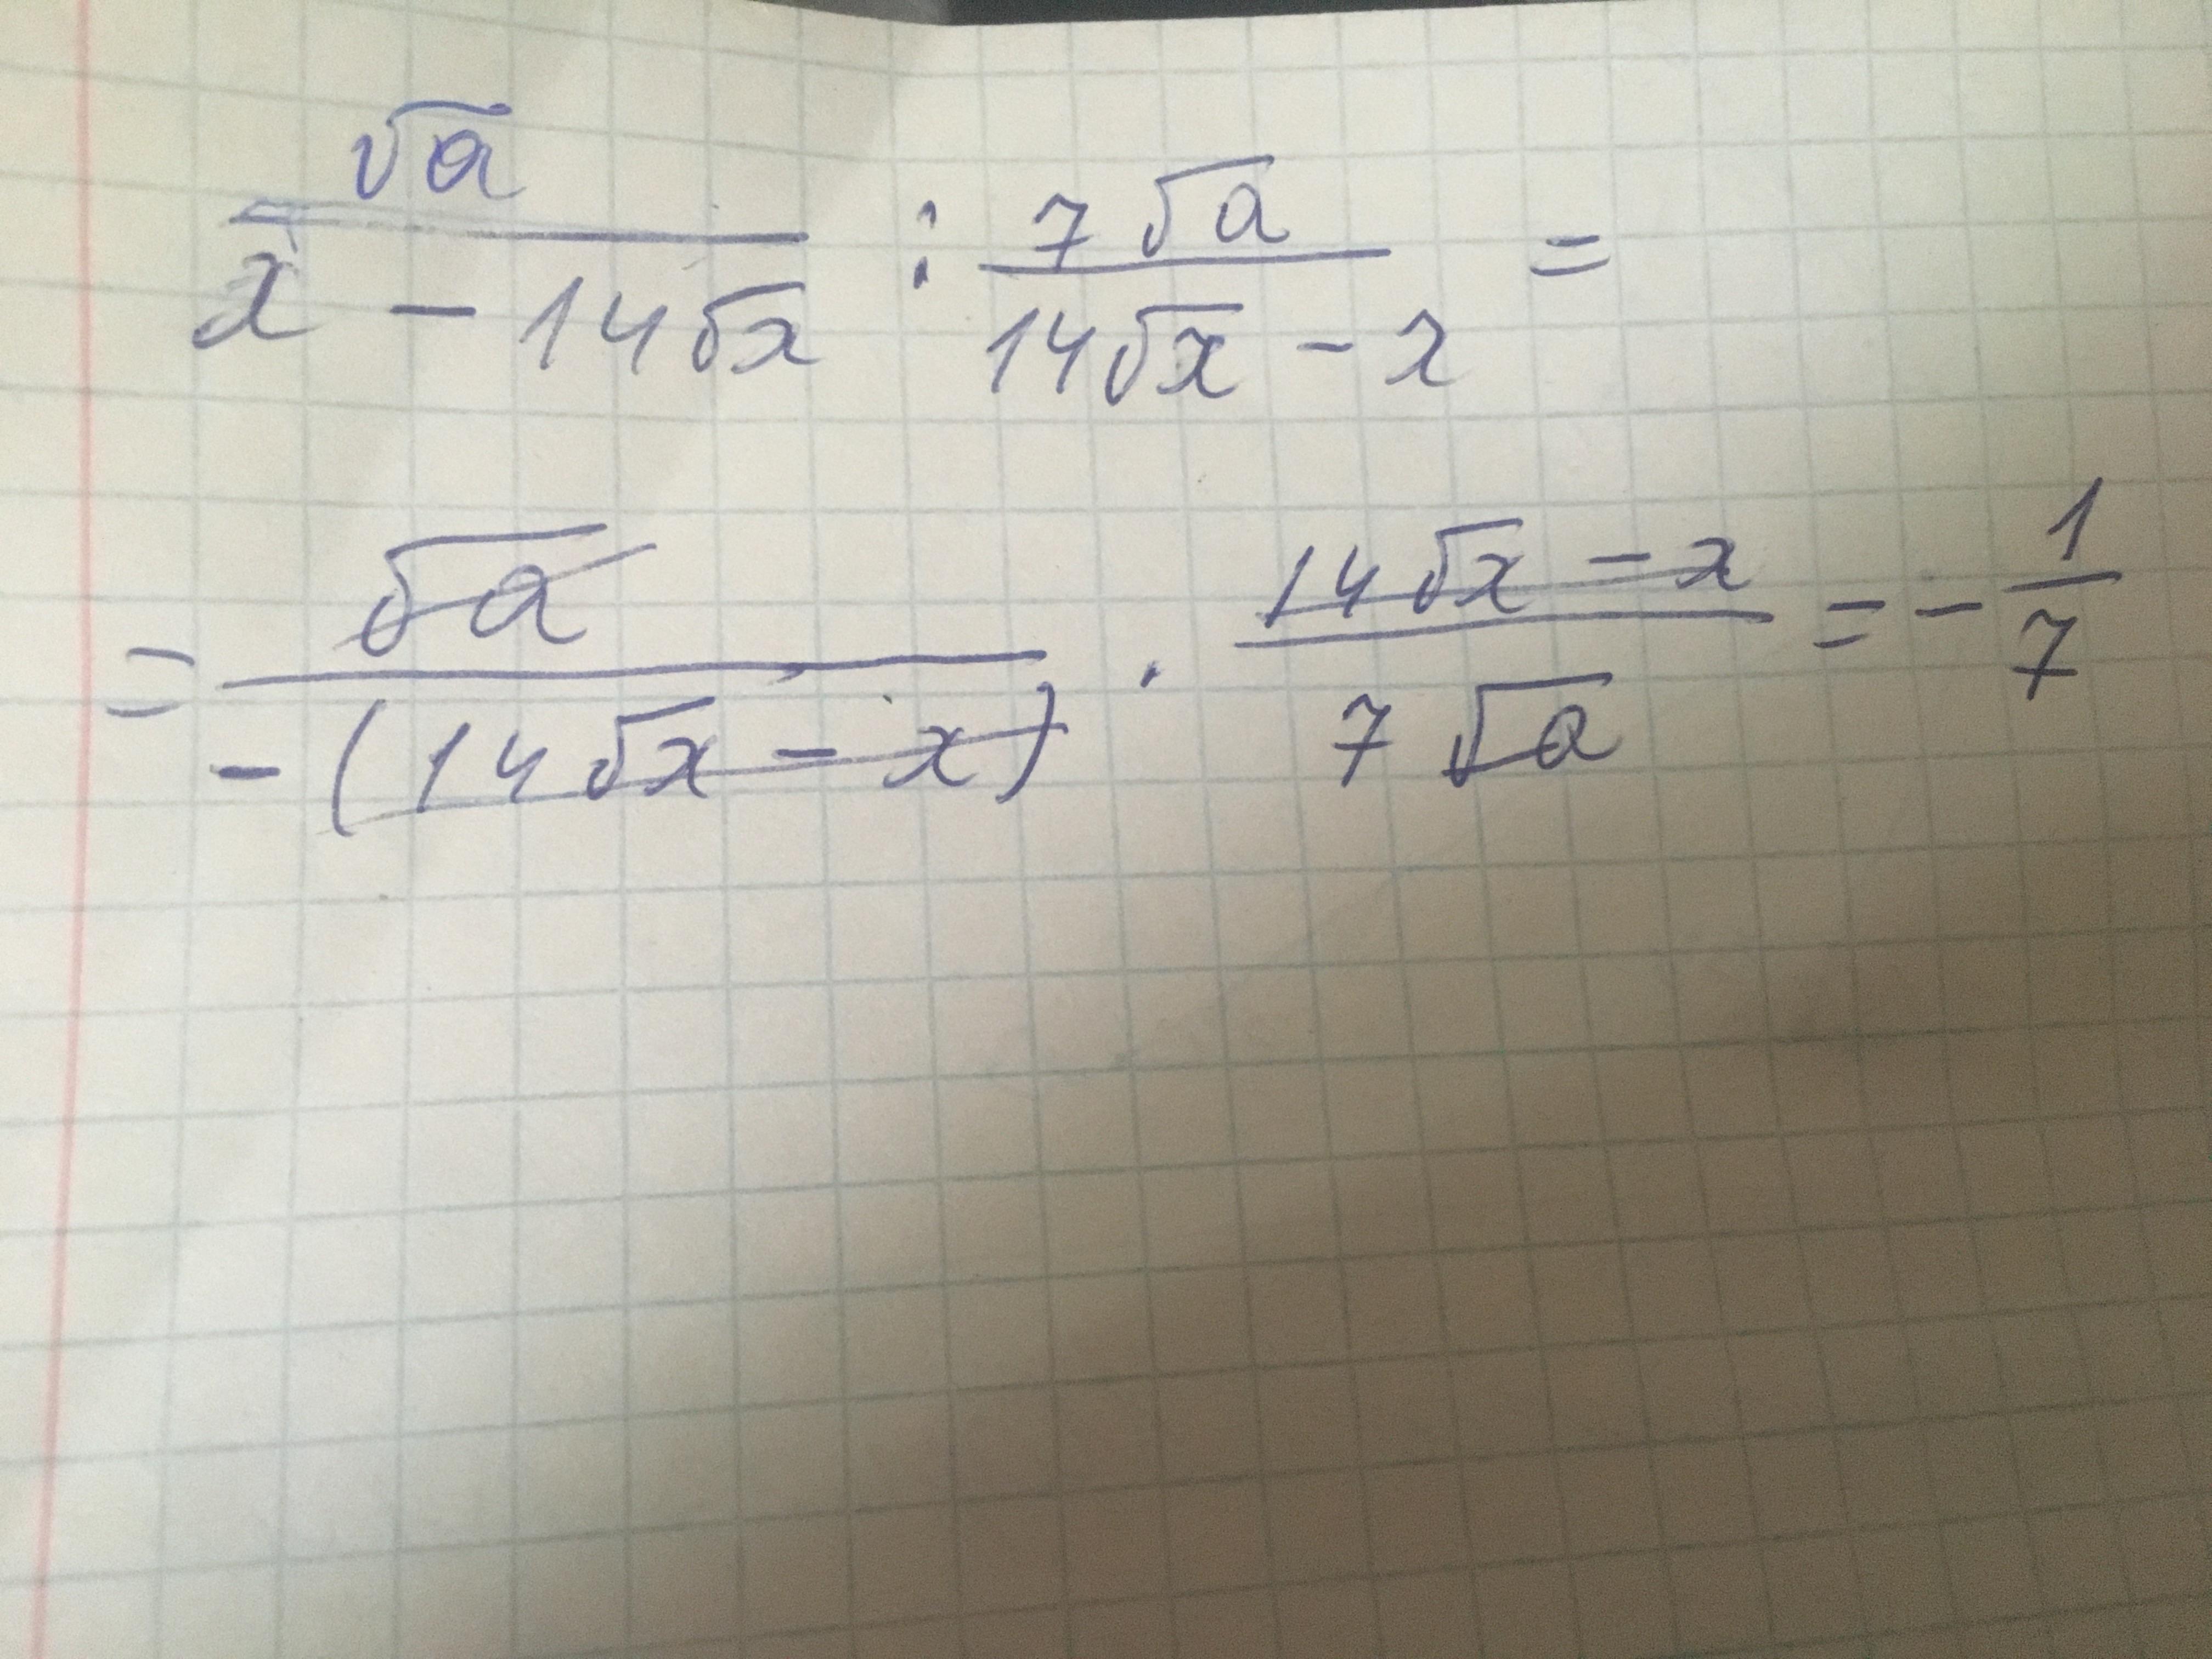 √a / (x - 14√x) : 7√a / (14√x - x) =
= √a / (-(14√x - x)) · (14√x - x) / (7√a) = - 1/7